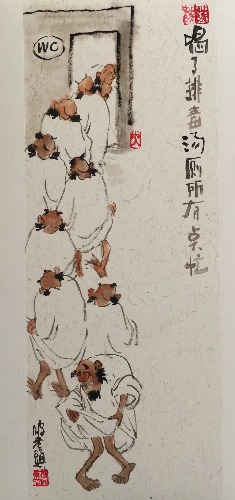 喝了排毒汤厕所有点忙
WC
老